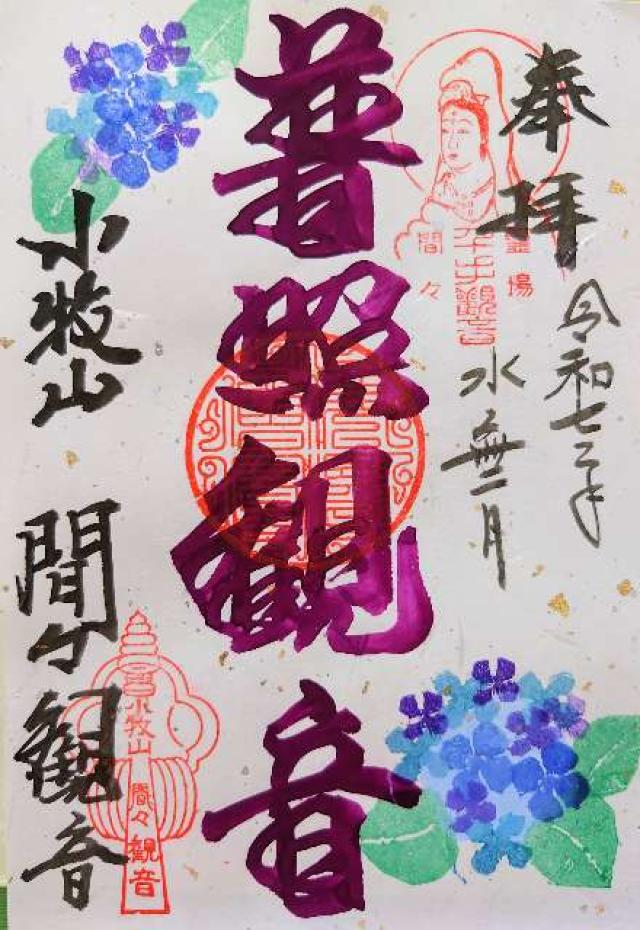 奉拝
令和七年
水無月
普照観音
小牧山
間々観音
霊場
間々
千手観音
小牧山
間々
観音